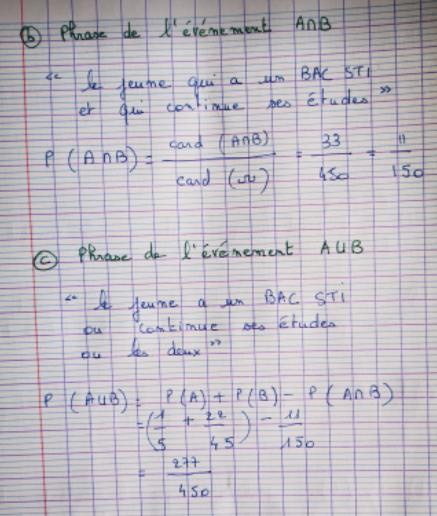 b Phrase de l'événement A∩B
“ le jeune qui a un BAC STI
et qui continue ses études ”
P (A∩B) = card (A∩B) / card (Ω) = 33/450 = 11/150
c Phrase de l'événement A∪B
“ le jeune a un BAC STI
ou continue ses études
ou les deux ”
P (A∪B) = P(A) + P(B) - P (A∩B)
= (1/5 + 22/45) - 11/150
= 277/450